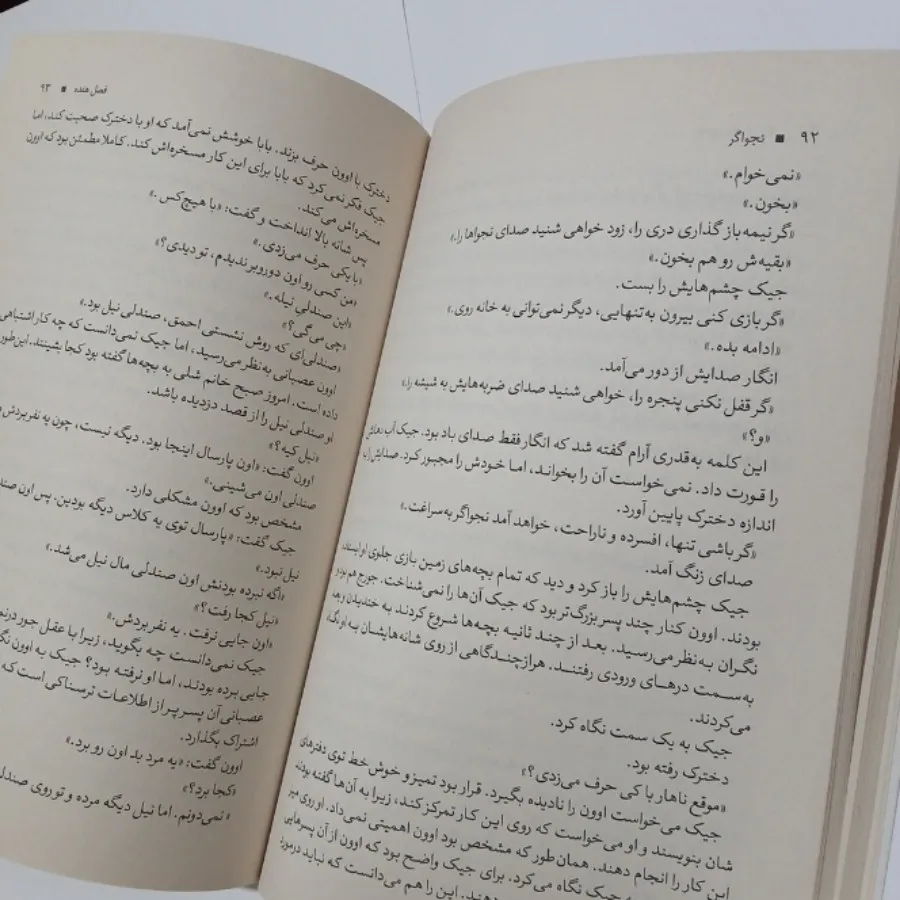 ۹۲ ■ نجواگر
«نمی‌خوام.»
«بخون.»
«گر نیمه‌باز گذاری دری را، زود خواهی شنید صدای نجواها را.»
«بقیه‌ش رو هم بخون.»
جیک چشم‌هایش را بست.
«گر بازی کنی بیرون به‌تنهایی، دیگر نمی‌توانی به خانه روی.»
«ادامه بده.»
انگار صدایش از دور می‌آمد.
«گر قفل نکنی پنجره را، خواهی شنید صدای ضربه‌هایش به شیشه را.»
«و؟»
این کلمه به‌قدری آرام گفته شد که انگار فقط صدای باد بود. جیک آب دهانش
را قورت داد. نمی‌خواست آن را بخواند، اما خودش را مجبور کرد. صدایش را به
اندازه دخترک پایین آورد.
«گر باشی تنها، افسرده و ناراحت، خواهد آمد نجواگر به‌سراغت.»
صدای زنگ آمد.
جیک چشم‌هایش را باز کرد و دید که تمام بچه‌های زمین بازی جلوی او ایستاده
بودند. اوون کنار چند پسر بزرگ‌تر بود که جیک آن‌ها را نمی‌شناخت. جورج هم بود و
نگران به‌نظر می‌رسید. بعد از چند ثانیه بچه‌ها شروع کردند به خندیدن و بعد
به‌سمت درهای ورودی رفتند. هرازچندگاهی از روی شانه‌هایشان به او نگاه
می‌کردند.
جیک به یک سمت نگاه کرد.
دخترک رفته بود.
«موقع ناهار با کی حرف می‌زدی؟»
جیک می‌خواست اوون را نادیده بگیرد. قرار بود تمیز و خوش خط توی دفترهای
شان بنویسند و او می‌خواست که روی این کار تمرکز کند، زیرا به آن‌ها گفته بودند
این کار را انجام دهند. همان‌طور که مشخص بود اوون اهمیتی نمی‌داد. او روی میز
به جیک نگاه می‌کرد. برای جیک واضح بود که اوون از آن پسرهایی
این را هم می‌دانست که نباید درمورد
فصل هفده ■ ۹۳
دخترک با اوون حرف بزند. بابا خوشش نمی‌آمد که او با دخترک صحبت کند، اما
جیک فکر نمی‌کرد که بابا برای این کار مسخره‌اش کند. کاملا مطمئن بود که اوون
مسخره‌اش می‌کند.
پس شانه بالا انداخت و گفت: «با هیچ‌کس.»
«با یکی حرف می‌زدی.»
«من کسی رو اون دوروبر ندیدم، تو دیدی؟»
«این صندلی نیله.»
«چی می‌گی؟»
«صندلی‌ای که روش نشستی احمق، صندلی نیل بود.»
اوون عصبانی به‌نظر می‌رسید، اما جیک نمی‌دانست که چه کار اشتباهی
داده است. امروز صبح خانم شلی به بچه‌ها گفته بود کجا بشینند. این‌طور
او صندلی نیل را از قصد دزدیده باشد.
«نیل کیه؟»
اوون گفت: «اون پارسال اینجا بود. دیگه نیست، چون یه نفر بردش و
صندلی اون می‌شینی.»
مشخص بود که اوون مشکلی دارد.
جیک گفت: «پارسال توی یه کلاس دیگه بودین. پس اون
نیل نبود.»
«اگه نبرده بودنش اون صندلی مال نیل می‌شد.»
«نیل کجا رفت؟»
«اون جایی نرفت. یه نفر بردش.»
جیک نمی‌دانست چه بگوید، زیرا با عقل جور
جایی برده بودند، اما او نرفته بود؟ جیک به اوون
عصبانی آن پسر پر از اطلاعات ترسناکی است که
اشتراک بگذارد.
اوون گفت: «یه مرد بد اون رو برد.»
«کجا برد؟»
«نمی‌دونم. اما نیل دیگه مرده و تو روی